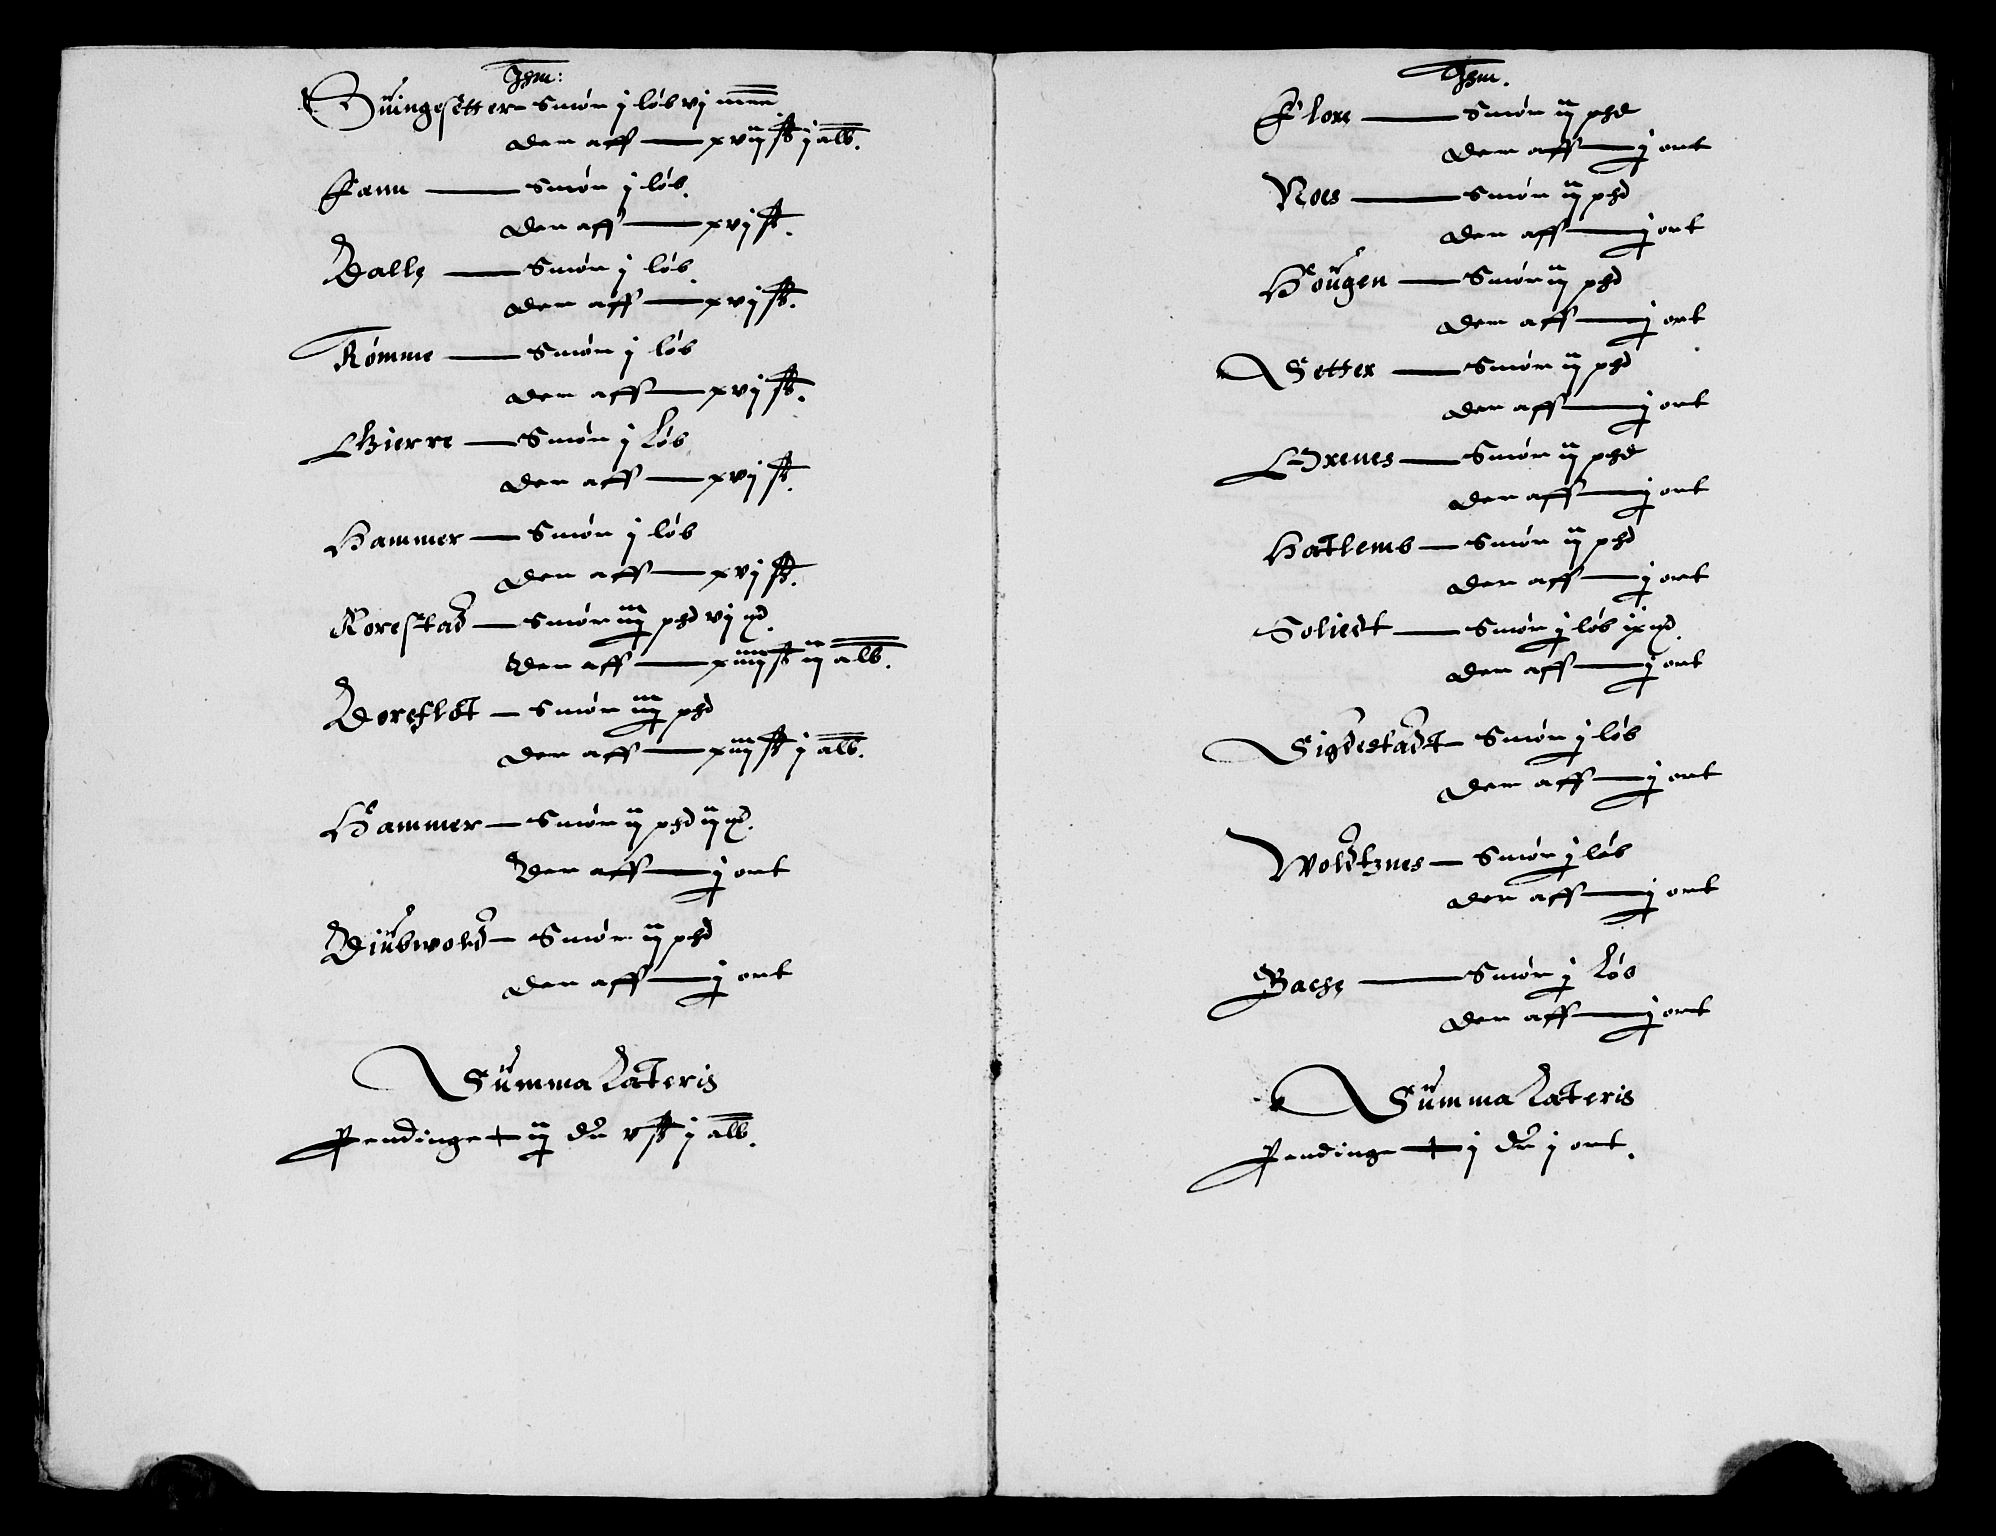 Jtem:
Suingesetter Smør j løb vj mrk
der aff — xvij ß j alb.
Fann — Smør j løb.
der aff — xvj ß.
Dalle — Smør j løb.
der aff — xvj ß.
Rømme — Smør j løb
der aff — xvj ß.
Gierre — Smør j Løb
der aff — xvj ß.
Hammer — Smør j løb
der aff — xvj ß.
Rorestad — Smør iiij phd vj mk.
Der aff — xiiij ß ij alb.
Doreflot — Smør iiij phd
der aff — xiij ß j alb.
Hammer — Smør ij phd ij mk.
Der aff — j ort
Diubwold — Smør ij phd
der aff — j ort
Summa Lateris
Pendinge — ij dr v ß j alb.
Jtem.
Flore — Smør ij phd
der aff — j ort
Noes — Smør ij phd
der aff — j ort
Hougen — Smør ij phd
der aff — j ort
Setter — Smør ij phd
der aff — j ort
Grenes — Smør ij phd
der aff — j ort
Hatlemb — Smør ij phd
der aff — j ort
Soliedt — Smør j løb ix mk.
der aff — j ort
Sigdestadt — Smør j løb
der aff — j ort
Woldtznes — Smør j løb
der aff — j ort
Bache — Smør j Løb
der aff — j ort
Summa Lateris
Pendinge — j dr j ort.